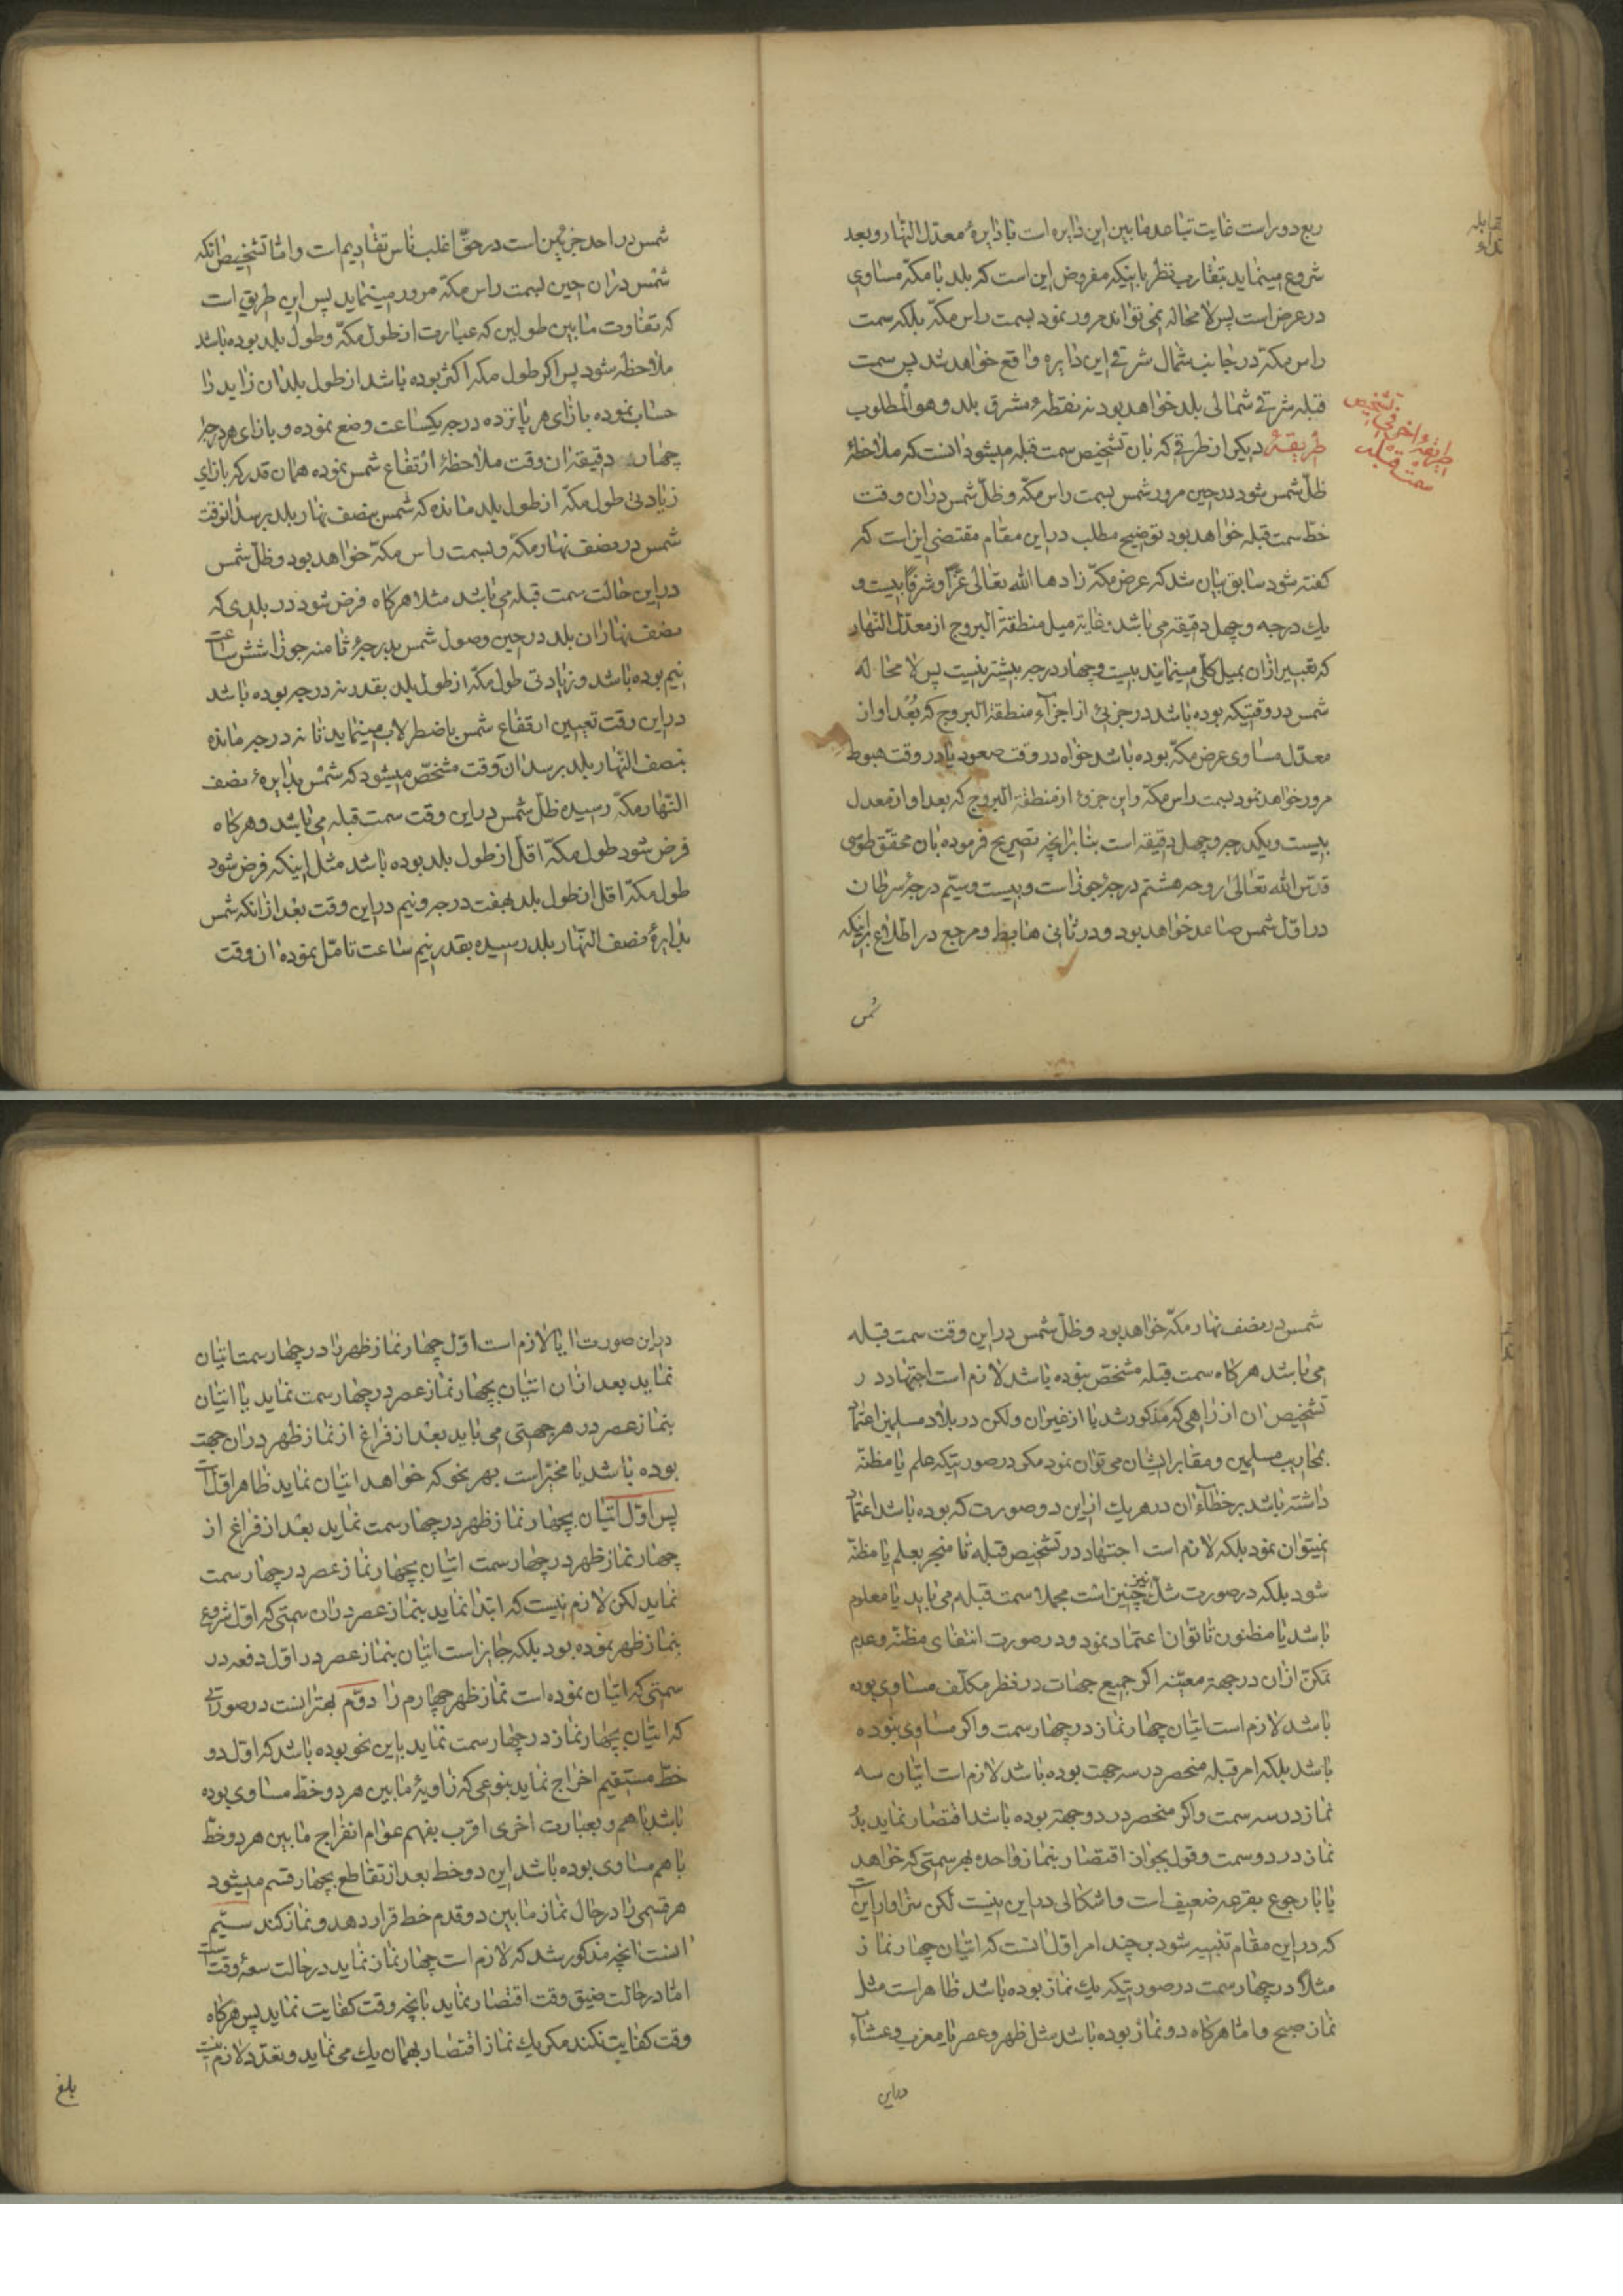 ربع دور است غایت تباعد ما بین این دایره است با دایرهٔ معدّل النّهار و بعد
شروع مینماید بتقارب نظر باینکه مفروض این است که بلد با مکّه مساوی
در عرض است پس لا محاله نمی تواند مرور نمود بسمت راس مکّه بلکه سمت
راس مکّه در جانب شمال شرقی این دایره واقع خواهد شد پس سمت
قبله شرقی شمالی بلد خواهد بود نه نقطهٔ مشرق بلد و هو المطلوب
طریقهٔ دیکر از طرقی که بان تشخیص سمت قبله میشود انست که ملاحظهٔ
ظلّ شمس شود در حین مرور شمس بسمت راس مکّه و ظلّ شمس دران وقت
خطّ سمت قبله خواهد بود توضیح مطلب در این مقام مقتضی این است که
کفته شود سابق بیان شد که عرض مکّه زادها الله تعالی عزًّا و شرفًا بیست و
یك درجه و چهل دقیقه می باشد و غایة میل منطقة البروج از معدّل النّهار
که تعبیر ازان بمیل کلّی مینمایند بیست و چهار درجه بیشتر نیست پس لا محاله
شمس در وقتیکه بوده باشد در جزئی از اجزاء منطقة البروج که بُعد او از
معدّل مساوی عرض مکّه بوده باشد خواه در وقت صعود یا در وقت هبوط
مرور خواهد نمود بسمت راس مکّه و این جزو از منطقة البروج که بعد او از معدل
بیست و یکدرجه و چهل دقیقه است بنا بر انچه تصریح فرموده بان محقّق طوسی
قدّس الله تعالی روحه هشتم درجهٔ جوزا است و بیست و سیّم درجهٔ سرطان
در اوّل شمس صاعد خواهد بود و در ثانی هابط و مرجع در اطّلاع براینکه
شمس
طریقهٔ اخری فی تشخیص
سمت قبله
شمس در احد جزئین است در حقّ اغلب ناس تقادیم است و امّا تشخیص انکه
شمس دران حین بسمت راس مکّه مرور مینماید پس این طریق است
که تفاوت ما بین طولین که عبارت از طول مکّه و طول بلد بوده باشد
ملاحظه شود پس اکر طول مکه اکثر بوده باشد از طول بلد ان زاید را
حساب نموده بازای هر پانزده درجه یکساعت وضع نموده و بازای هر درجهٔ
چهار دقیقه ان وقت ملاحظهٔ ارتفاع شمس نموده همان قدر که بازای
زیادتی طول مکّه از طول بلد مانده که شمس بنصف نهار بلد برسد انوقت
شمس در نصف نهار مکّه و بسمت راس مکّه خواهد بود و ظلّ شمس
در این حالت سمت قبله می باشد مثلا هرکاه فرض شود در بلدی که
نصف نهار ان بلد در حین وصول شمس بدرجهٔ ثامنه جوزا شش ساعت
نیم بوده باشد و زیادتی طول مکّه از طول بلد بقدر نه درجه بوده باشد
در این وقت تعیین ارتفاع شمس باضطرلاب مینماید تا نه درجه مانده
بنصف النّهار بلد برسد ان وقت مشخّص میشود که شمس بدایرهٔ نصف
النّهار مکّه رسیده ظلّ شمس در این وقت سمت قبله می باشد و هرکاه
فرض شود طول مکّه اقلّ از طول بلد بوده باشد مثل اینکه فرض شود
طول مکّه اقل از طول بلد بهفت درجه و نیم در این وقت بعد از انکه شمس
بدایرهٔ نصف النّهار بلد رسیده بقدر نیم ساعت تامّل نموده ان وقت
شمس در نصف نهار مکّه خواهد بود و ظلّ شمس در این وقت سمت قبله
می باشد هرکاه سمت قبله مشخّص نبوده باشد لازم است اجتهاد در
تشخیص ان از راهی که مذکور شد یا از غیر ان ولکن در بلاد مسلمین اعتماد
بمحاریب مسلمین و مقابر ایشان می توان نمود مکر در صورتیکه علم یا مظنّه
داشته باشد بر خطاء ان در هر یك از این دو صورت که بوده باشد اعتماد
نمیتوان نمود بلکه لازم است اجتهاد در تشخیص قبله تا منجر بعلم یا مظنّه
شود بلکه در صورت شكّ نیز چنین است مجملا سمت قبله می باید یا معلوم
باشد یا مظنون تا توان اعتماد نمود و در صورت انتفای مظنّه و عدم
تمکّن ازان در جهة معیّنه اکر جمیع جهات در نظر مکلّف مساوی بوده
باشد لازم است اتیان چهار نماز در چهار سمت و اکر مساوی نبوده
باشد بلکه امر قبله منحصر در سه جهت بوده باشد لازم است اتیان سه
نماز در سه سمت و اکر منحصر در دو جهة بوده باشد اقتصار نماید بدو
نماز در دو سمت و قول بجواز اقتصار بنماز واحده بهر سمتی که خواهد
یا با رجوع بقرعه ضعیف است و اشکالی در این نیست لکن سزاوار این است
که در این مقام تنبیه شود بر چند امر اوّل انست که اتیان چهار نماز
مثلاً در چهار سمت در صورتیکه یك نماز بوده باشد ظاهر است مثل
نماز صبح و امّا هرکاه دو نماز بوده باشد مثل ظهر و عصر یا مغرب و عشاء
در این
در این صورت ایا لازم است اوّل چهار نماز ظهر را در چهار سمت اتیان
نماید بعد ازان اتیان بچهار نماز عصر در چهار سمت نماید یا اتیان
بنماز عصر در هر جهتی می باید بعد از فراغ از نماز ظهر دران جهت
بوده باشد یا مخیّر است بهر نحو که خواهد اتیان نماید ظاهر اوّل است
پس اوّل اتیان بچهار نماز ظهر در چهار سمت نماید بعد از فراغ از
چهار نماز ظهر در چهار سمت اتیان بچهار نماز عصر در چهار سمت
نماید لکن لازم نیست که ابتدا نماید بنماز عصر دران سمتی که اوّل شروع
بنماز ظهر نموده بود بلکه جایز است اتیان بنماز عصر در اوّل دفعه در
سمتی که اتیان نموده است نماز ظهر چهارم را دوّم بهتر انست در صورتی
که اتیان بچهار نماز در چهار سمت نماید باین نحو بوده باشد که اوّل دو
خطّ مستقیم اخراج نماید بنوعی که زاویهٔ ما بین هر دو خطّ مساوی بوده
باشد با هم و بعبارت اخری اقرب بفهم عوام انفراج ما بین هر دو خطّ
با هم مساوی بوده باشد این دو خط بعد از تقاطع بچهار قسم میشود
هر قسمی را در حال نماز ما بین دو قدم خط قرار دهد و نماز کند سیّم
انست انچه مذکور شد که لازم است چهار نماز نماید در حالت سعهٔ وقت است
امّا در حالت ضیق وقت اقتصار نماید بانچه وقت کفایت نماید پس هرکاه
وقت کفایت نکند مکر یك نماز اقتصار بهمان یك می نماید و تعدّد لازم نیست
بلغ